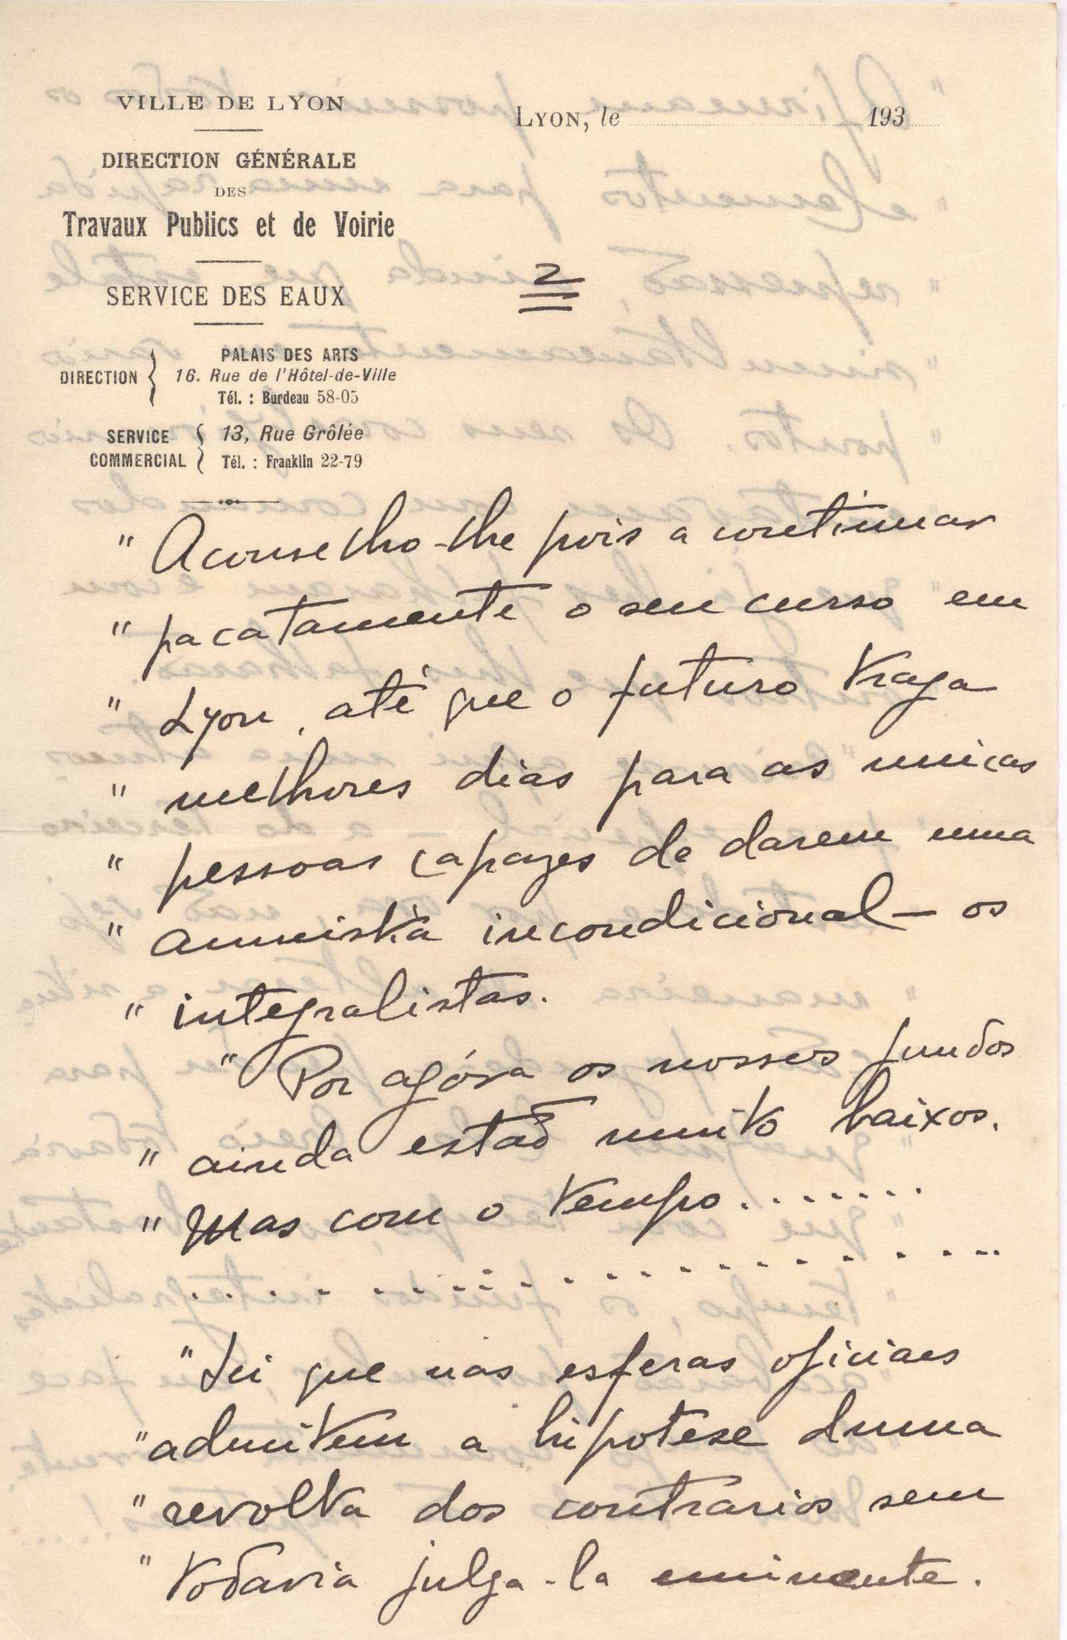 VILLE DE LYON
LYON, le 193
DIRECTION GÉNÉRALE
DES
Travaux Publics et de Voirie
2
SERVICE DES EAUX
DIRECTION { PALAIS DES ARTS
16. Rue de l'Hôtel-de-Ville
Tél. : Burdeau 58-05
SERVICE COMMERCIAL { 13, Rue Grôlée
Tél. : Franklin 22-79
" Aconselho-lhe pois a continuar
" pacatamente o seu curso em
" Lyon, até que o futuro traga
" melhores dias para as unicas
" pessoas capazes de darem uma
" amnistia incondicional — os
" integralistas.
" Por agóra os nossos fundos
" ainda estão muito baixos.
" Mas com o tempo.......
....................
" Sei que nas esferas oficiaes
" admitem a hipotese duma
" revolta dos contrarios sem
" todavia julga-la eminente.